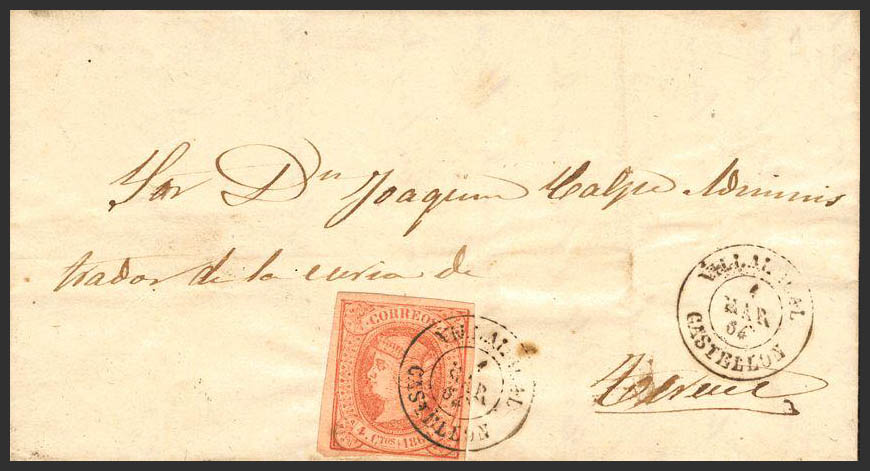 Sor Dn Joaquin Calpe Adminis
trador de la curia de
CORREOS
4 CTOS 186
VILLAREAL
1
MAR
64
CASTELLON
VILLAREAL
1
MAR
64
CASTELLON